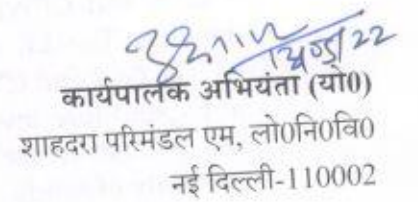 कार्यपालक अभियंता (यो0)
शाहदरा परिमंडल एम, लो0नि0वि0
नई दिल्ली-110002